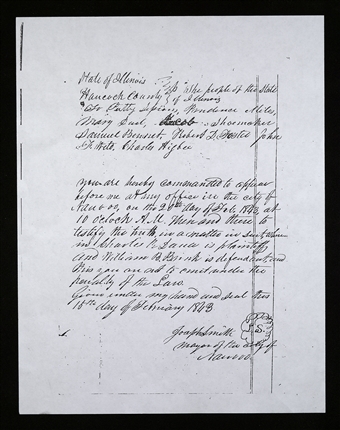 State of Illinois } ss The people of the State
Hancock County } of Illinois
To Patty Sessions, Prudence Miles,
Mary Duel, Jacob Shoemaker
Samuel Bennet, Robert D. Foster John
F. Weld, Charles Higbee
you are hereby commanded to appear
before me at my office in the city of
Nauvoo, on the 20th day of Feb. 1843, at
10 oclock A.M. Then and there to
testify the truth, in a matter in suit where
in Charles R. Dana is plaintiff
and William B. Brink is defendant and
this you are not to omit under the
penalty of the Law.
Given under my hand and seal this
10th day of February 1843
Joseph Smith L S
mayor of the city of
Nauvoo